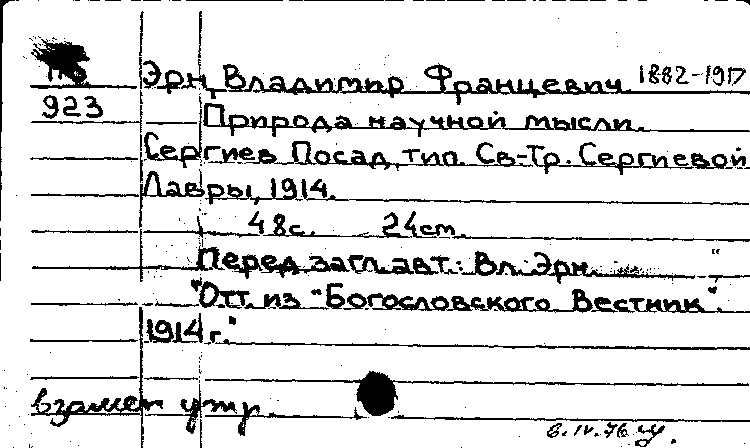 Эрн, Владимир Францевич 1882-1917
923
Природа научной мысли.
Сергиев Посад, тип. Св-Тр. Сергиевой
Лавры, 1914.
48с. 24ст.
Перед загл. авт.: Вл. Эрн.
"Отт. из "Богословского Вестник".
1914 г."
взамен утр.
6.IV.76